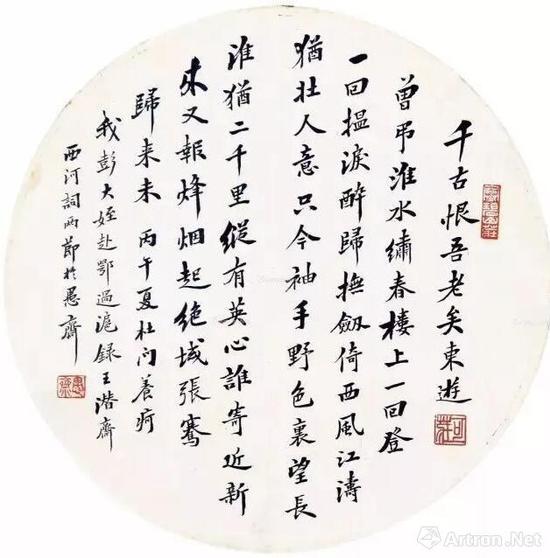 千古恨吾老矣東遊
曾弔淮水繡春樓上一回登
一回揾淚醉歸撫劔倚西風江濤
猶壯人意只今袖手野色裏望長
淮猶二千里縱有英心誰寄近新
来又報烽烟起絶域張騫
歸来未 丙午夏杜门養疴
我彭大姪赴鄂過滬録王潜齋
西河詞两節於愚齋
愚齋
Artron.Net